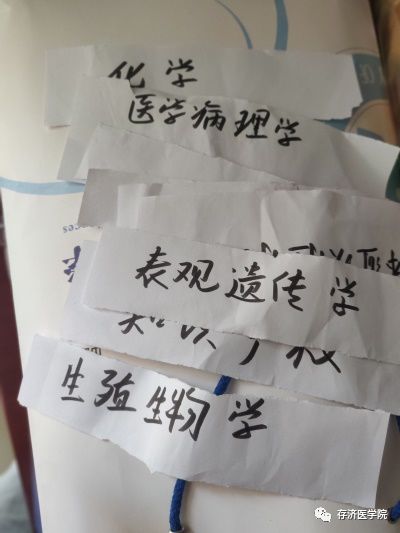 化学
医学病理学
表观遗传学
知识产权
生殖生物学
存济医学院